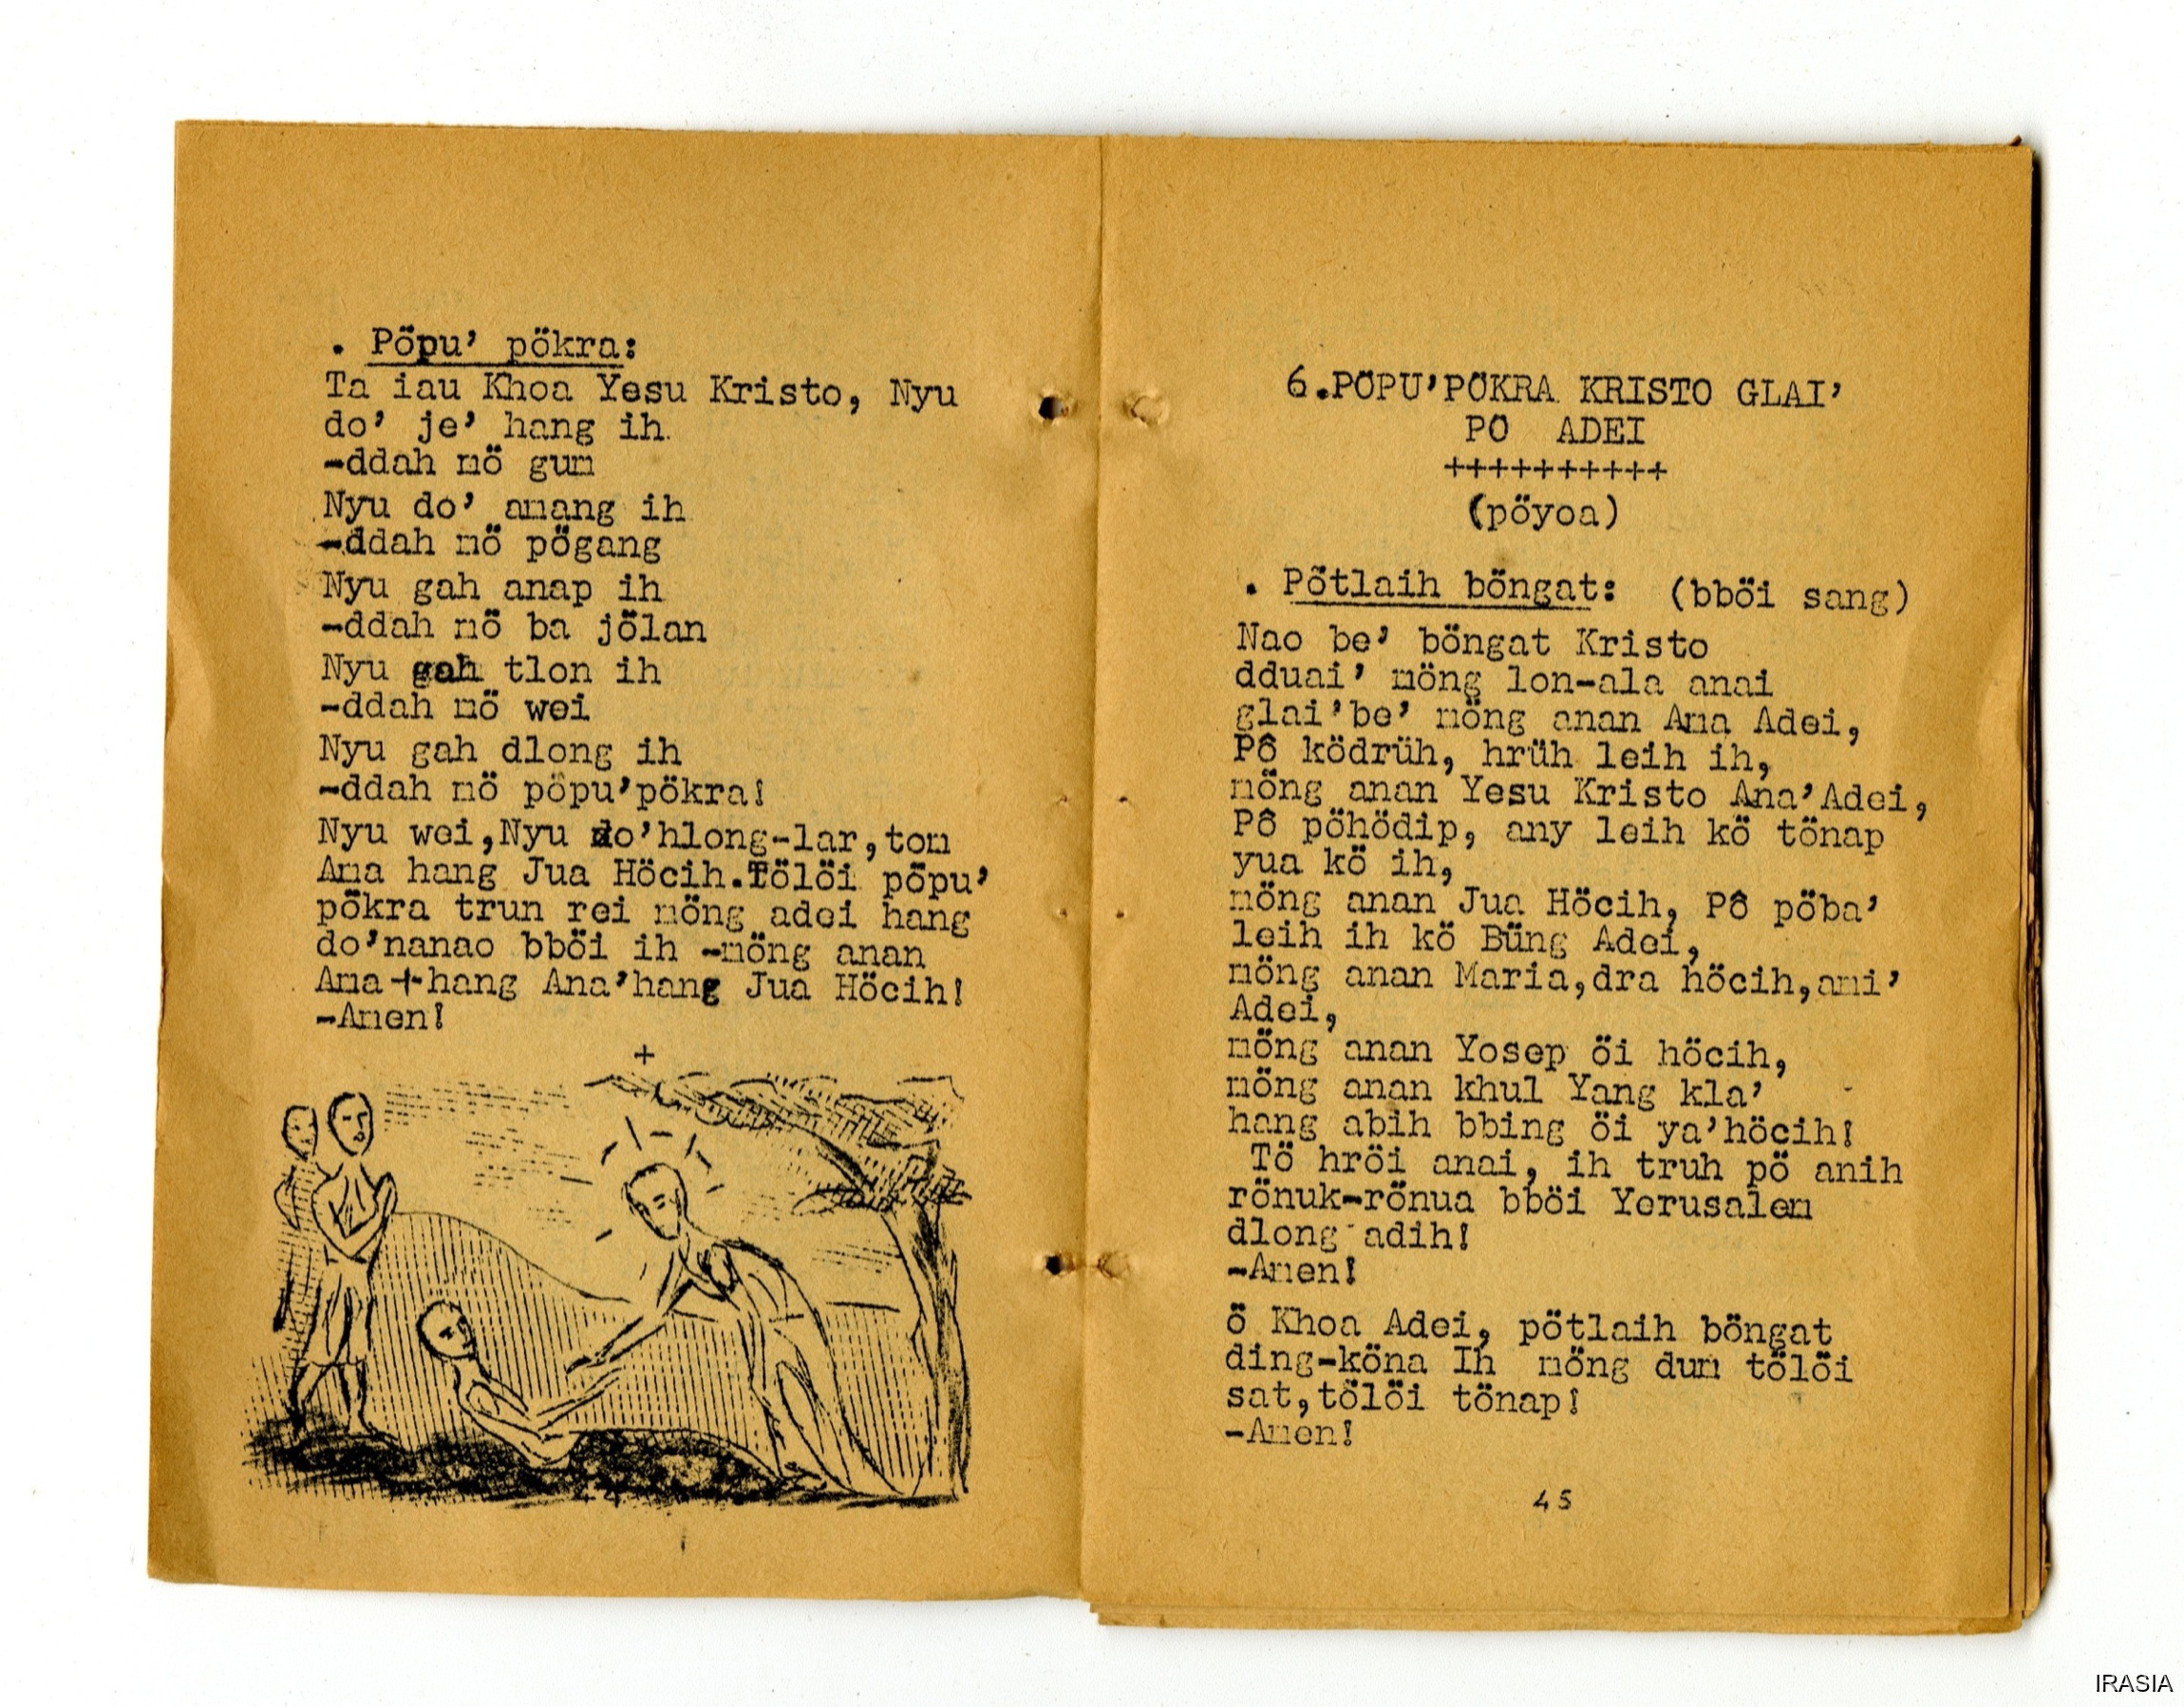 . Pöpu’ pökra:
Ta iau Khoa Yesu Kristo, Nyu
do’ je’ hang ih
-ddah mö gum
Nyu do’ amang ih
-ddah mö pögang
Nyu gah anap ih
-ddah mö ba jölan
Nyu gah tlon ih
-ddah mö wei
Nyu gah dlong ih
-ddah mö pöpu’pökra!
Nyu wei,Nyu do’hlong-lar,tom
Ama hang Jua Höcih.Tölöi pöpu’
pökra trun rei möng adei hang
do’nanao bböi ih -möng anan
Ama + hang Ana’hang Jua Höcih!
-Amen!
+
44
6.PÖPU’PÖKRA KRISTO GLAI’
PÖ ADEI
++++++++++
(pöyoa)
. Pötlaih böngat: (bböi sang)
Nao be’ böngat Kristo
dduai’ möng lon-ala anai
glai’be’ möng anan Ama Adei,
Pô ködrüh, hrüh leih ih,
möng anan Yesu Kristo Ana’Adei,
Pô pöhödip, any leih kö tönap
yua kö ih,
möng anan Jua Höcih, Pô pöba’
leih ih kö Büng Adei,
möng anan Maria,dra höcih,ami’
Adei,
möng anan Yosep öi höcih,
möng anan khul Yang kla’
hang abih bbing öi ya’höcih!
Tö hröi anai, ih truh pö anih
rönuk-rönua bböi Yerusalem
dlong adih!
-Amen!
ö Khoa Adei, pötlaih böngat
ding-köna Ih möng dum tölöi
sat,tölöi tönap!
-Amen!
45
IRASIA